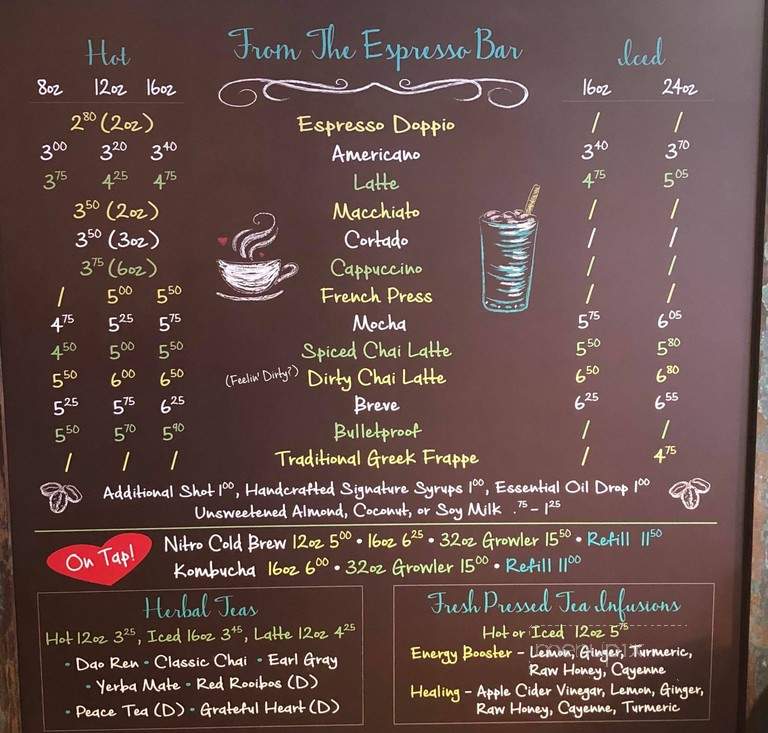 Hot From The Espresso Bar Iced
8oz 12oz 16oz 16oz 24oz
2⁸⁰ (2oz) Espresso Doppio / /
3⁰⁰ 3²⁰ 3⁴⁰ Americano 3⁴⁰ 3⁷⁰
3⁷⁵ 4²⁵ 4⁷⁵ Latte 4⁷⁵ 5⁰⁵
3⁵⁰ (2oz) Macchiato / /
3⁵⁰ (3oz) Cortado / /
3⁷⁵ (6oz) Cappuccino / /
/ 5⁰⁰ 5⁵⁰ French Press / /
4⁷⁵ 5²⁵ 5⁷⁵ Mocha 5⁷⁵ 6⁰⁵
4⁵⁰ 5⁰⁰ 5⁵⁰ Spiced Chai Latte 5⁵⁰ 5⁸⁰
5⁵⁰ 6⁰⁰ 6⁵⁰ (Feelin' Dirty?) Dirty Chai Latte 6⁵⁰ 6⁸⁰
5²⁵ 5⁷⁵ 6²⁵ Breve 6²⁵ 6⁵⁵
5⁵⁰ 5⁷⁰ 5⁹⁰ Bulletproof / /
/ / / Traditional Greek Frappe / 4⁷⁵
Additional Shot 1⁰⁰, Handcrafted Signature Syrups 1⁰⁰, Essential Oil Drop 1⁰⁰
Unsweetened Almond, Coconut, or Soy Milk .⁷⁵ - 1²⁵
On Tap!
Nitro Cold Brew 12oz 5⁰⁰ • 16oz 6²⁵ • 32oz Growler 15⁵⁰ • Refill 11⁵⁰
Kombucha 16oz 6⁰⁰ • 32oz Growler 15⁰⁰ • Refill 11⁰⁰
Herbal Teas
Hot 12oz 3²⁵, Iced 16oz 3⁴⁵, Latte 12oz 4²⁵
• Dao Ren • Classic Chai • Earl Gray
• Yerba Mate • Red Rooibos (D)
• Peace Tea (D) • Grateful Heart (D)
Fresh Pressed Tea Infusions
Hot or Iced 12oz 5⁷⁵
Energy Booster - Lemon, Ginger, Turmeric,
Raw Honey, Cayenne
Healing - Apple Cider Vinegar, Lemon, Ginger,
Raw Honey, Cayenne, Turmeric